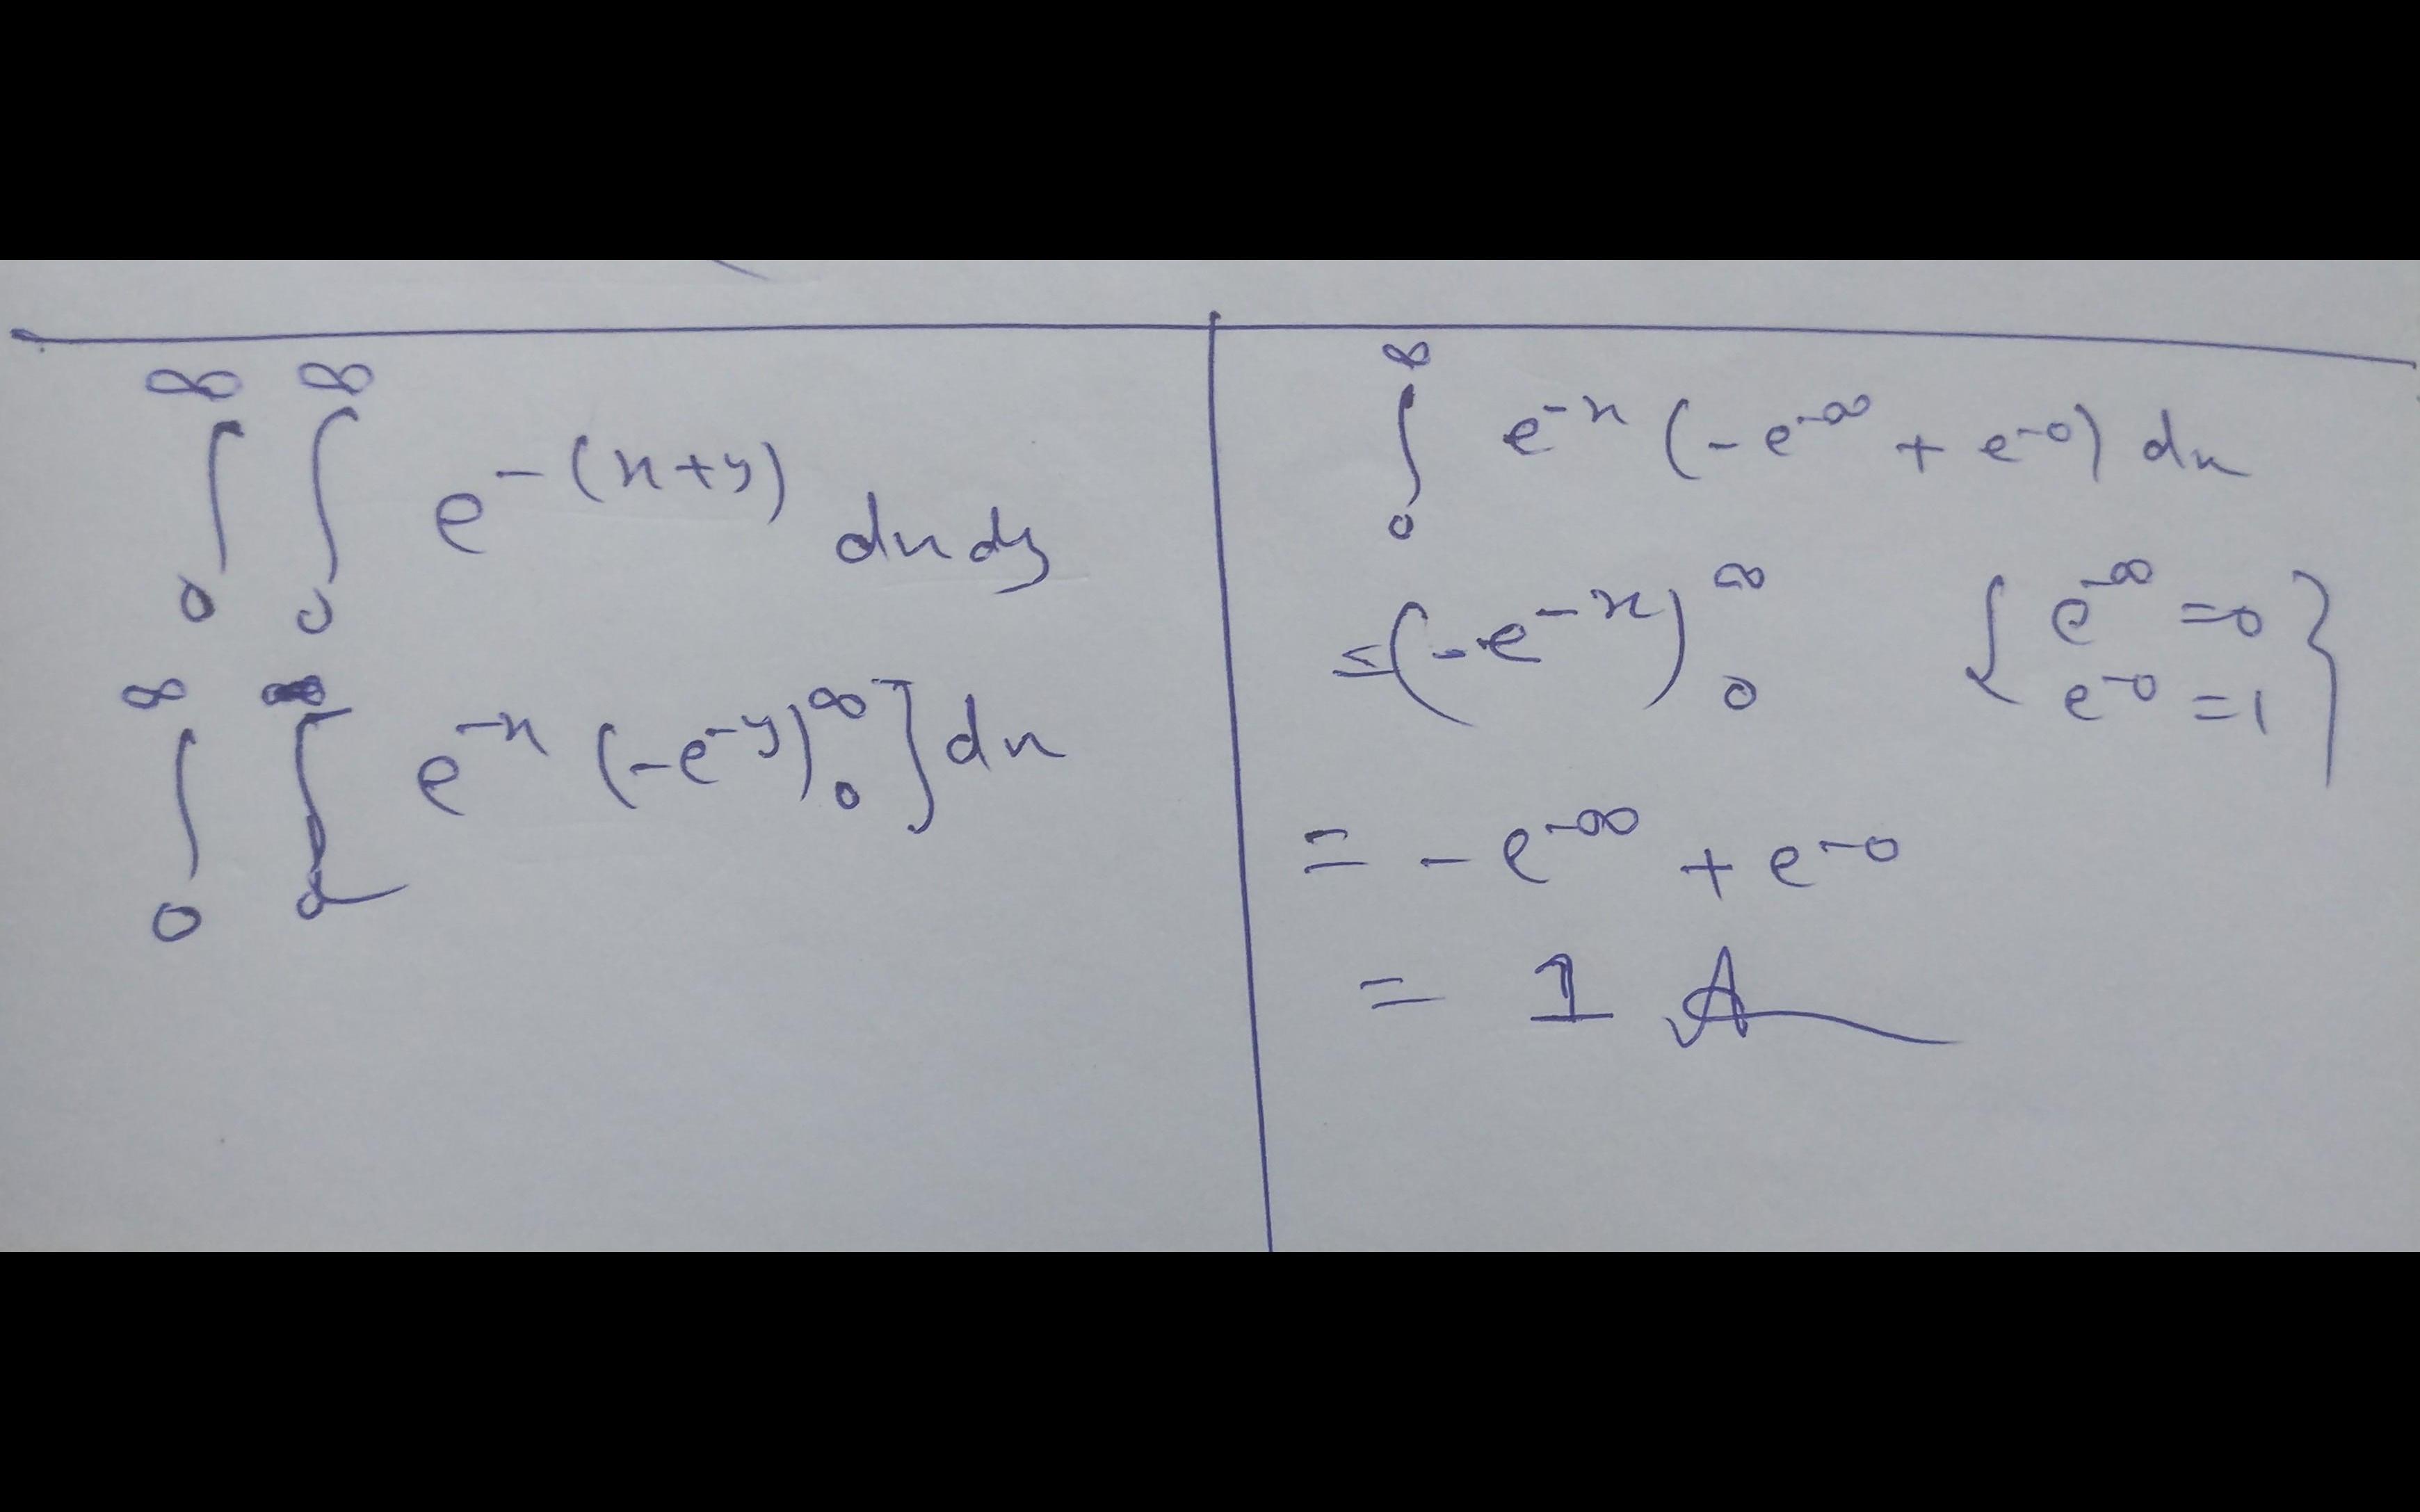 ∫₀^∞ ∫₀^∞ e^-(x+y) dx dy
∫₀^∞ [ e^-x (-e^-y)₀^∞ ] dx
∫₀^∞ e^-x (-e^-∞ + e^-0) dx
= (-e^-x)₀^∞ { e^-∞ = 0
e^-0 = 1 }
= -e^-∞ + e^-0
= 1